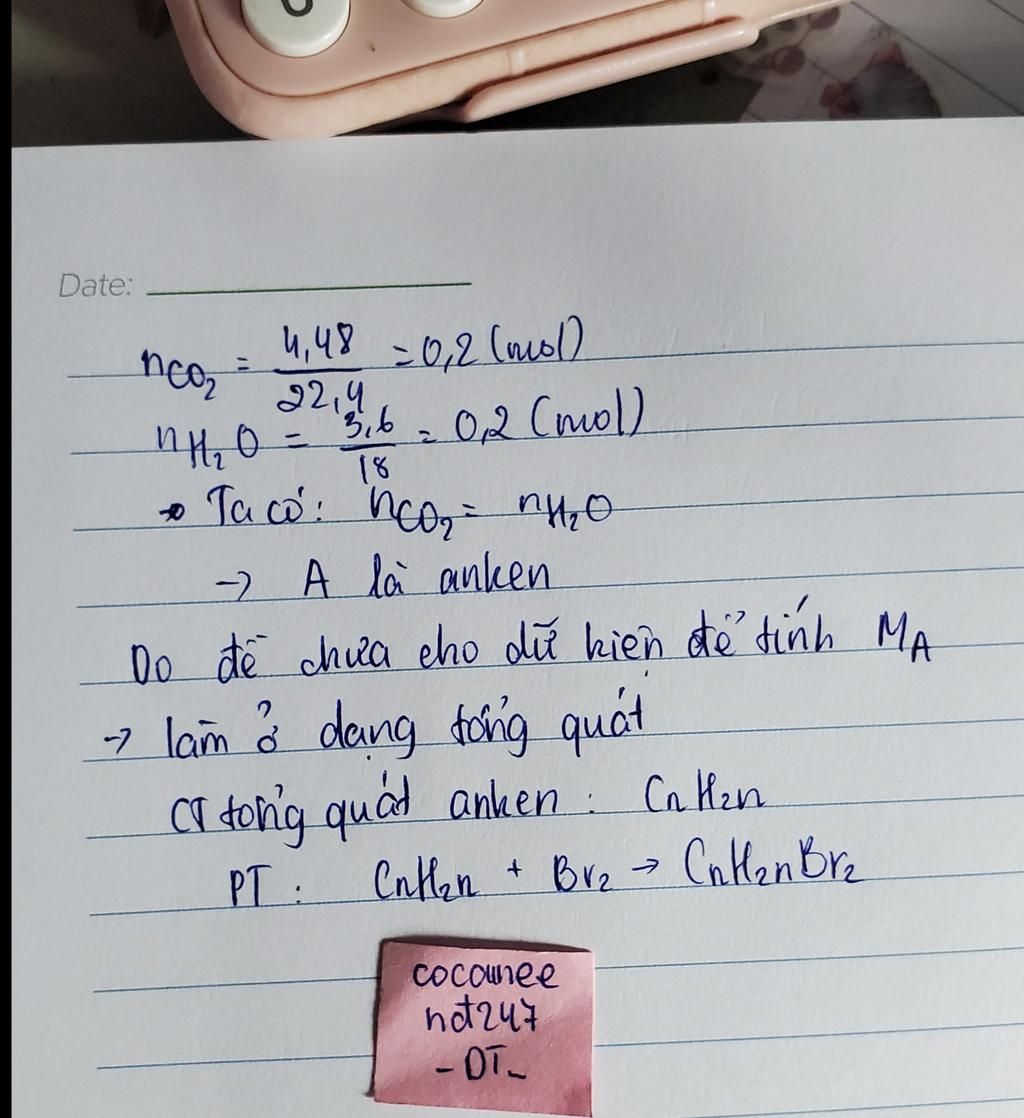 Date:
nCO₂ = 4,48/22,4 = 0,2 (mol)
nH₂O = 3,6/18 = 0,2 (mol)
→ Ta có: nCO₂ = nH₂O
→ A là anken
Do đề chưa cho dữ kiện để tính MA
→ làm ở dạng tổng quát
CT tổng quát anken : CnH₂n
PT : CnH₂n + Br₂ → CnH₂nBr₂
cocounee
not247
-DT-